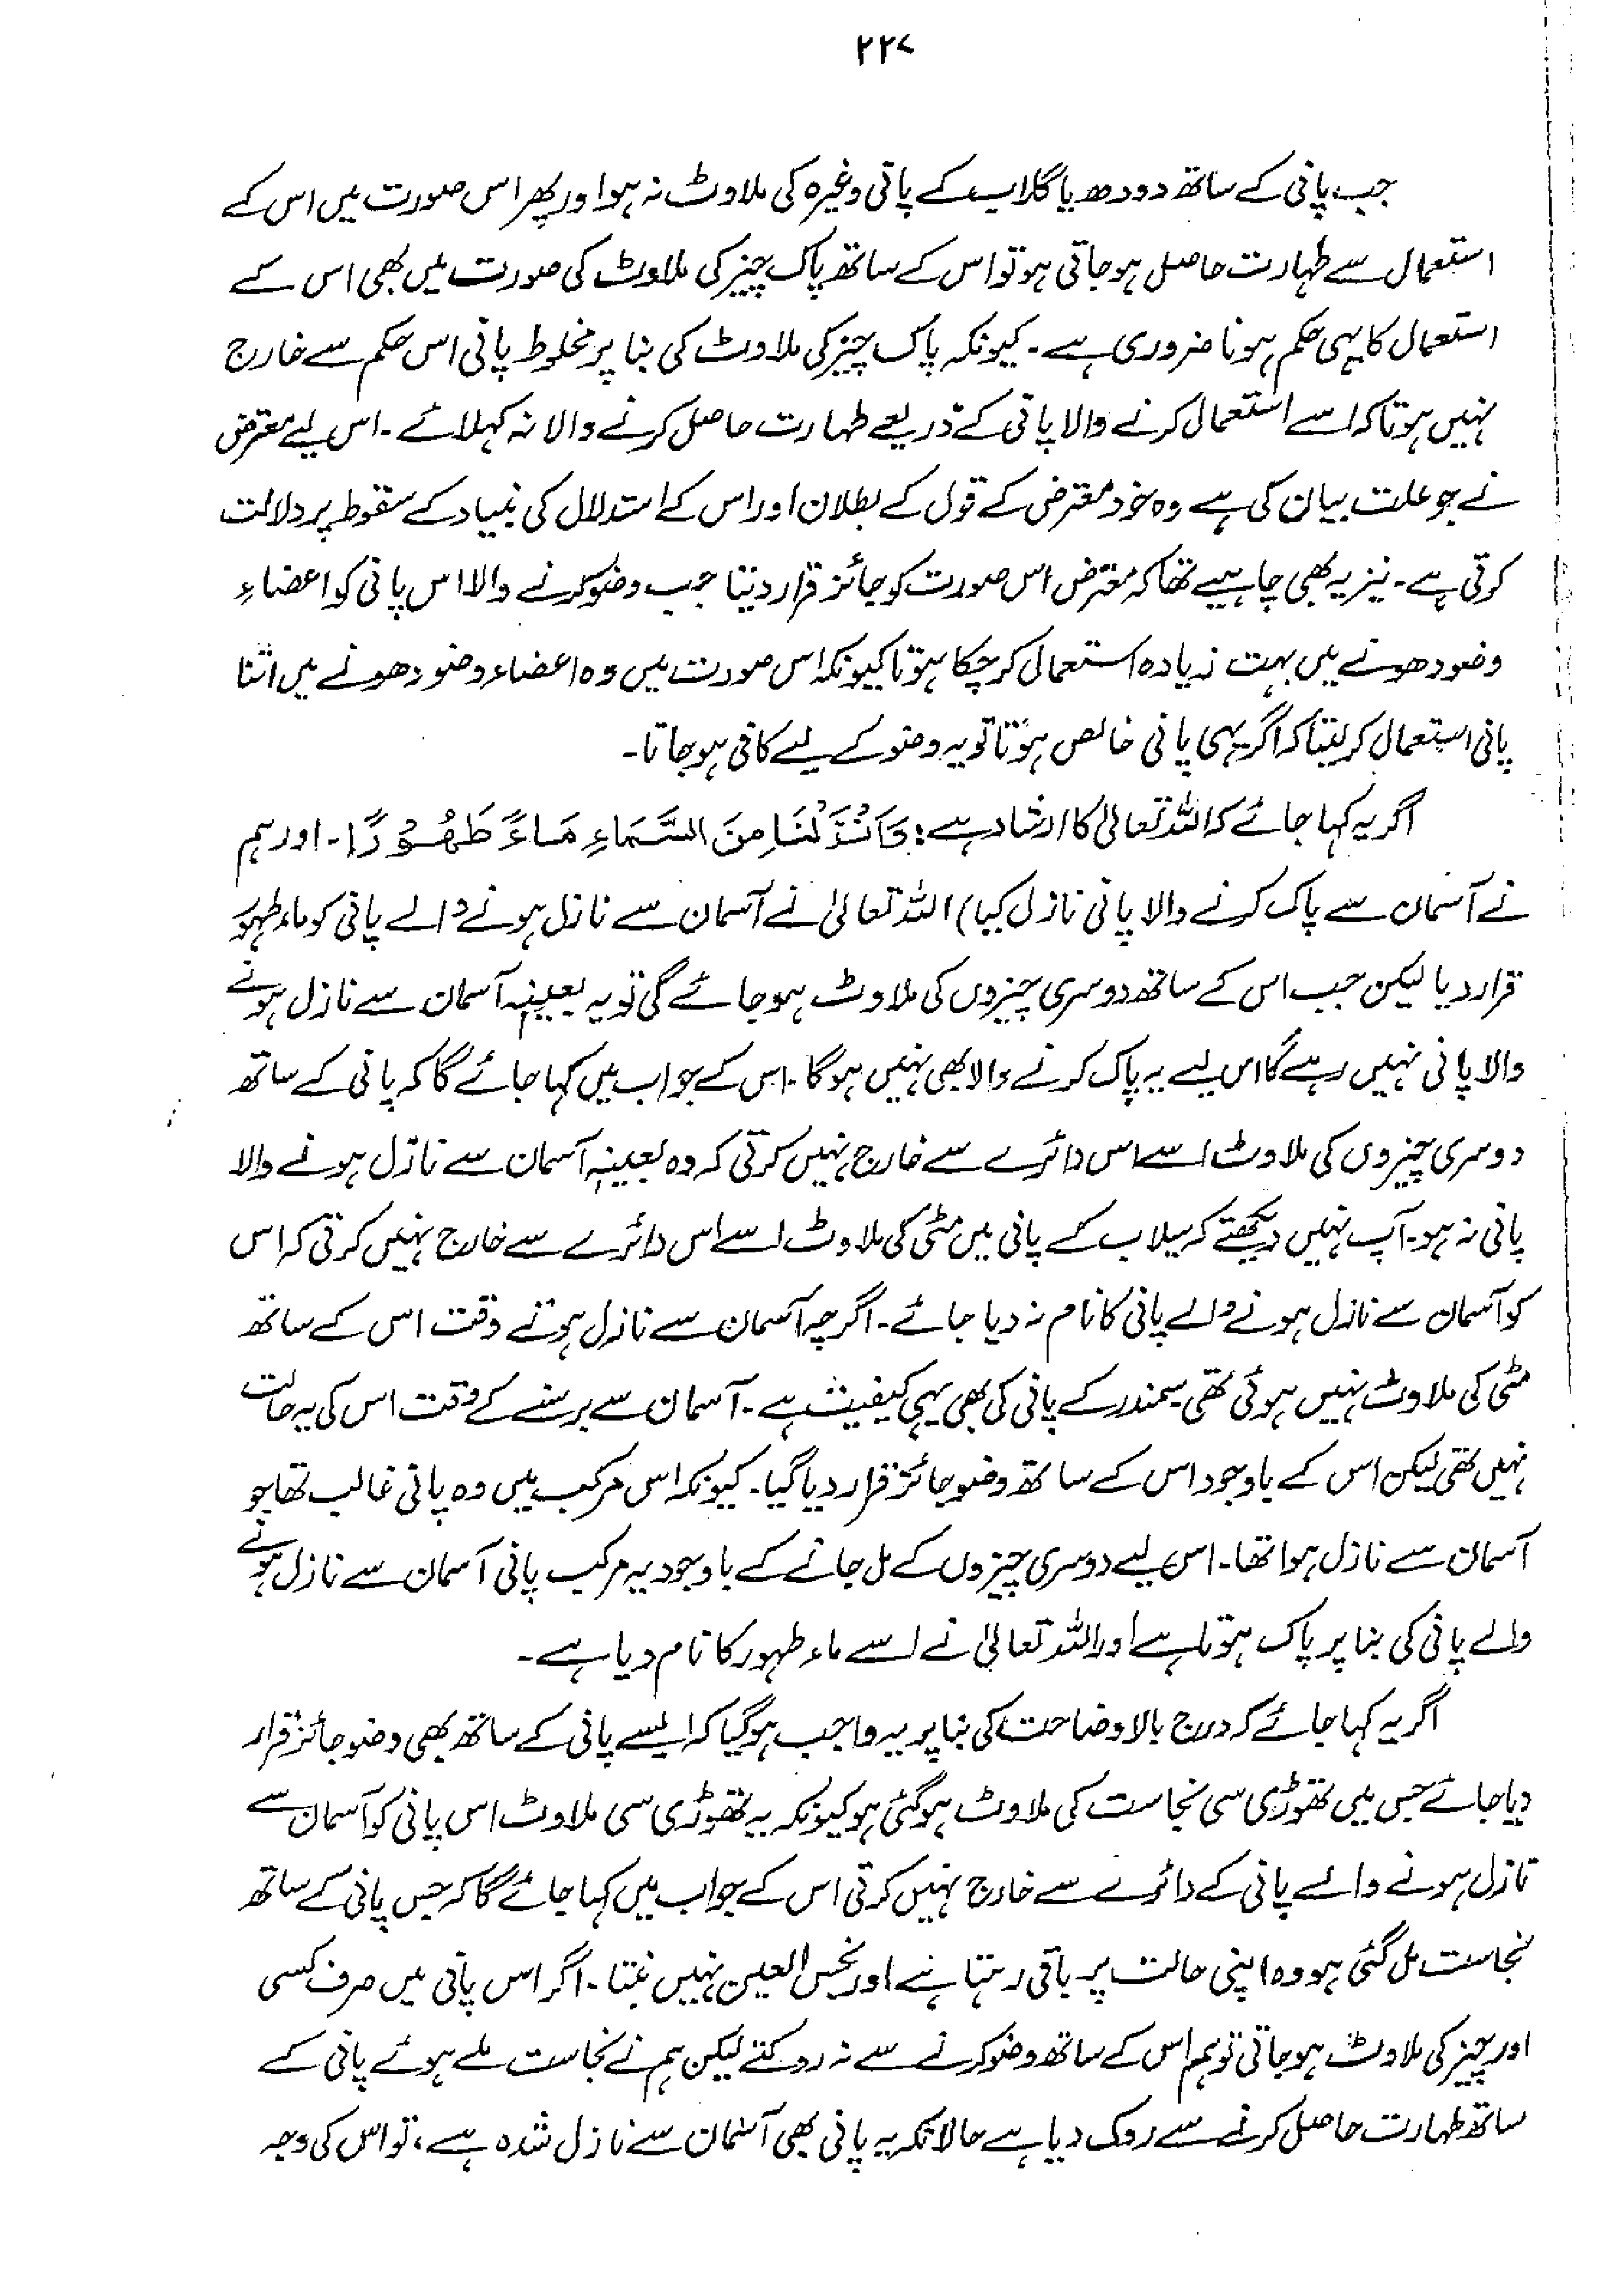 ۲۲۷
جب پانی کے ساتھ دودھ یا گلاب کے پانی وغیرہ کی ملاوٹ نہ ہو اور پھر اس صورت میں اس کے
استعمال سے طہارت حاصل ہو جاتی ہو تو اس کے ساتھ پاک چیز کی ملاوٹ کی صورت میں بھی اس کے
استعمال کا یہی حکم ہونا ضروری ہے۔ کیونکہ پاک چیز کی ملاوٹ کی بنا پر مخلوط پانی اس حکم سے خارج
نہیں ہوتا کہ اسے استعمال کرنے والا پانی کے ذریعے طہارت حاصل کرنے والا نہ کہلائے۔ اس لیے معترض
نے جو علت بیان کی ہے وہ خود معترض کے قول کے بطلان اور اس کے استدلال کی بنیاد کے سقوط پر دلالت
کرتی ہے۔ نیز یہ بھی چاہیے تھا کہ معترض اس صورت کو جائز قرار دیتا جب وضو کرنے والا اس پانی کو اعضاءِ
وضو دھونے میں بہت زیادہ استعمال کر چکا ہوتا کیونکہ اس صورت میں وہ اعضاء وضو دھونے میں اتنا
پانی استعمال کر لیتا کہ اگر یہی پانی خالص ہوتا تو یہ وضو کے لیے کافی ہو جاتا۔
اگر یہ کہا جائے کہ اللہ تعالیٰ کا ارشاد ہے: وَاَنْزَلْنَا مِنَ السَّمَاءِ مَاءً طَهُوْرًا۔ اور ہم
نے آسمان سے پاک کرنے والا پانی نازل کیا) اللہ تعالیٰ نے آسمان سے نازل ہونے والے پانی کو ماء طہور
قرار دیا لیکن جب اس کے ساتھ دوسری چیزوں کی ملاوٹ ہو جائے گی تو یہ بعینہٖ آسمان سے نازل ہونے
والا پانی نہیں رہے گا اس لیے یہ پاک کرنے والا بھی نہیں ہوگا۔ اس کے جواب میں کہا جائے گا کہ پانی کے ساتھ
دوسری چیزوں کی ملاوٹ اسے اس دائرے سے خارج نہیں کرتی کہ وہ بعینہٖ آسمان سے نازل ہونے والا
پانی نہ ہو۔ آپ نہیں دیکھتے کہ سیلاب کے پانی میں مٹی کی ملاوٹ اسے اس دائرے سے خارج نہیں کرتی کہ اس
کو آسمان سے نازل ہونے والے پانی کا نام نہ دیا جائے۔ اگرچہ آسمان سے نازل ہوتے وقت اس کے ساتھ
مٹی کی ملاوٹ نہیں ہوئی تھی۔ سمندر کے پانی کی بھی یہی کیفیت ہے۔ آسمان سے برسنے کے وقت اس کی یہ حالت
نہیں تھی لیکن اس کے باوجود اس کے ساتھ وضو جائز قرار دیا گیا۔ کیونکہ اس مرکب میں وہ پانی غالب تھا جو
آسمان سے نازل ہوا تھا۔ اس لیے دوسری چیزوں کے مل جانے کے باوجود یہ مرکب پانی آسمان سے نازل ہونے
والے پانی کی بنا پر پاک ہوتا ہے اور اللہ تعالیٰ نے اسے ماء طہور کا نام دیا ہے۔
اگر یہ کہا جائے کہ درج بالا وضاحت کی بنا پر یہ واجب ہوگیا کہ ایسے پانی کے ساتھ بھی وضو جائز قرار
دیا جائے جس میں تھوڑی سی نجاست کی ملاوٹ ہوگئی ہو کیونکہ یہ تھوڑی سی ملاوٹ اس پانی کو آسمان سے
نازل ہونے والے پانی کے دائرے سے خارج نہیں کرتی اس کے جواب میں کہا جائے گا کہ جس پانی کے ساتھ
نجاست مل گئی ہو وہ اپنی حالت پر باقی رہتا ہے اور نجس العین نہیں بنتا۔ اگر اس پانی میں صرف کسی
اور چیز کی ملاوٹ ہو جاتی تو ہم اس کے ساتھ وضو کرنے سے نہ روکتے لیکن ہم نے نجاست ملے ہوئے پانی کے
ساتھ طہارت حاصل کرنے سے روک دیا ہے حالانکہ یہ پانی بھی آسمان سے نازل شدہ ہے، تو اس کی وجہ